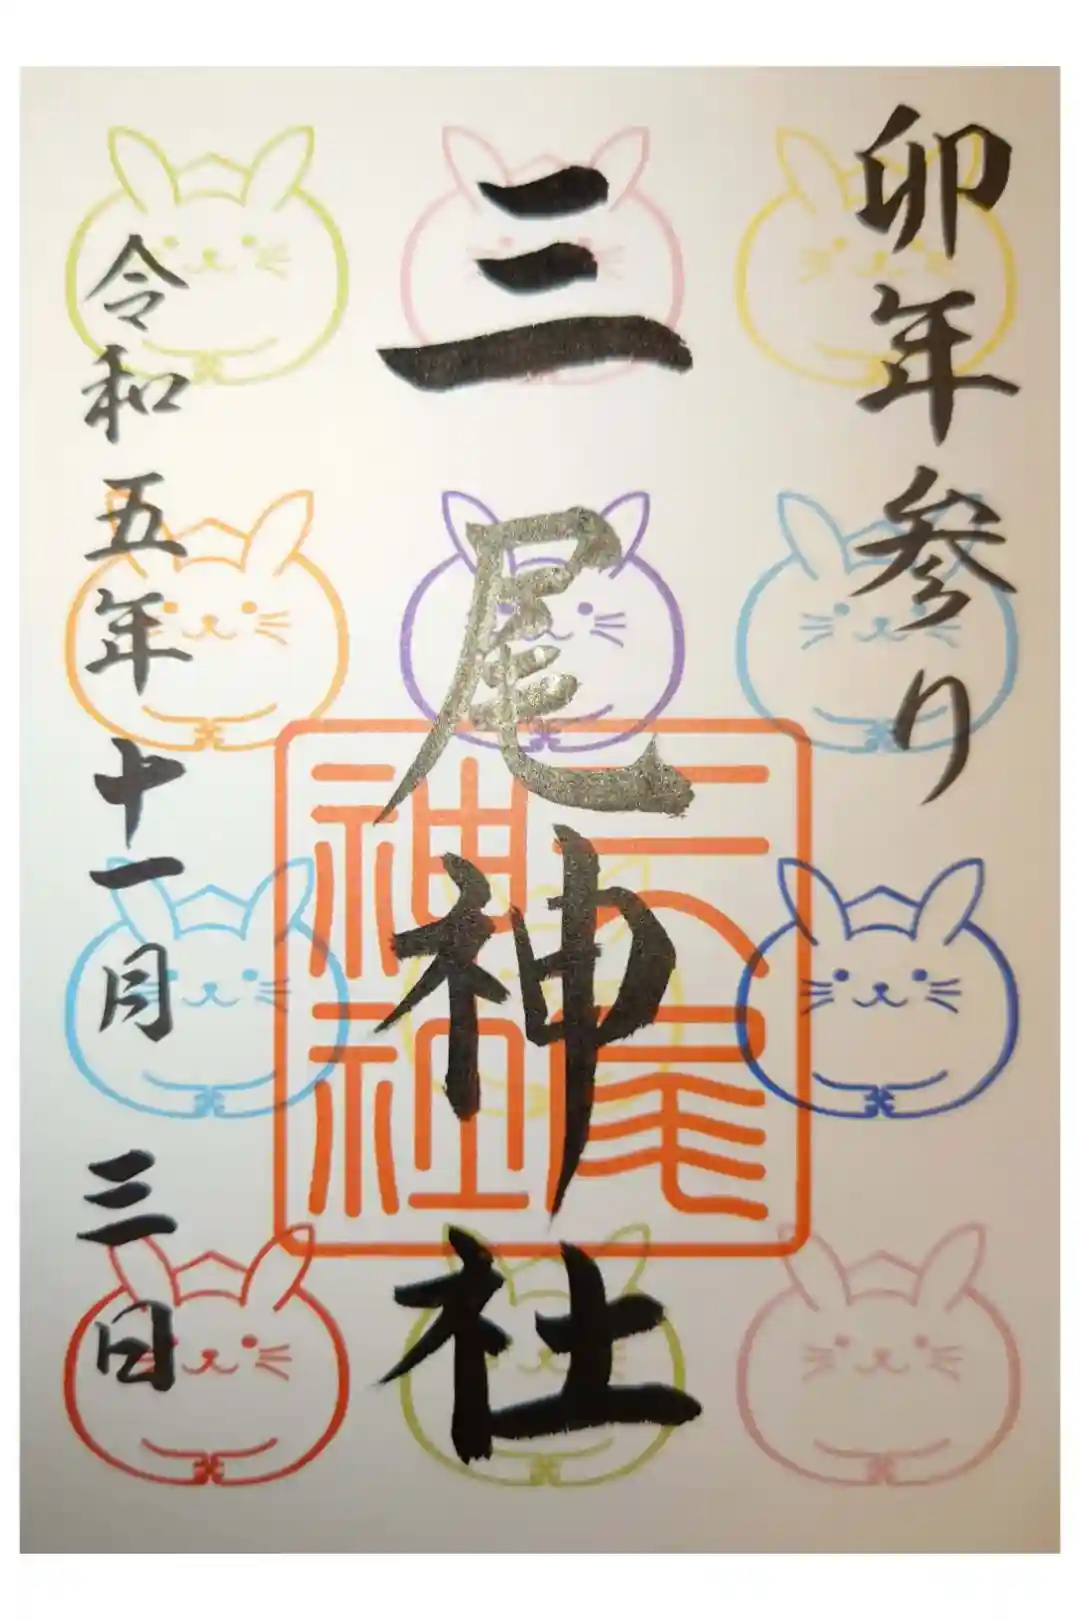 卯年参り
三尾神社
三尾
神社
令和五年十一月三日